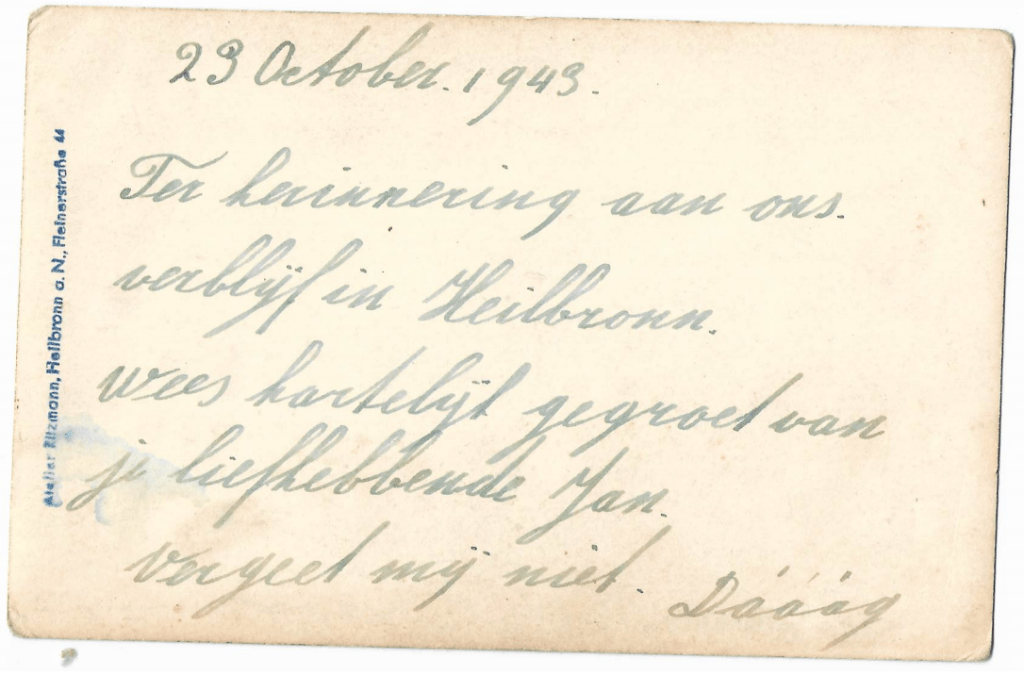 23 October. 1943.
Ter herinnering aan ons.
verblijf in Heilbronn.
wees hartelijk gegroet van
je liefhebbende Jan.
vergeet mij niet.
Dááág
Atelier Filzmann, Heilbronn a. N., Fleinerstraße 44